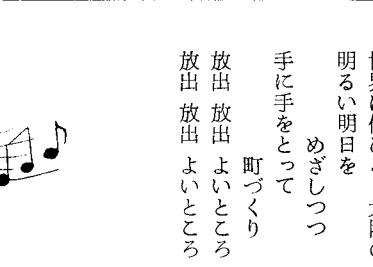 明るい明日を
めざしつつ
手に手をとって
町づくり
放出 放出 よいところ
放出 放出 よいところ